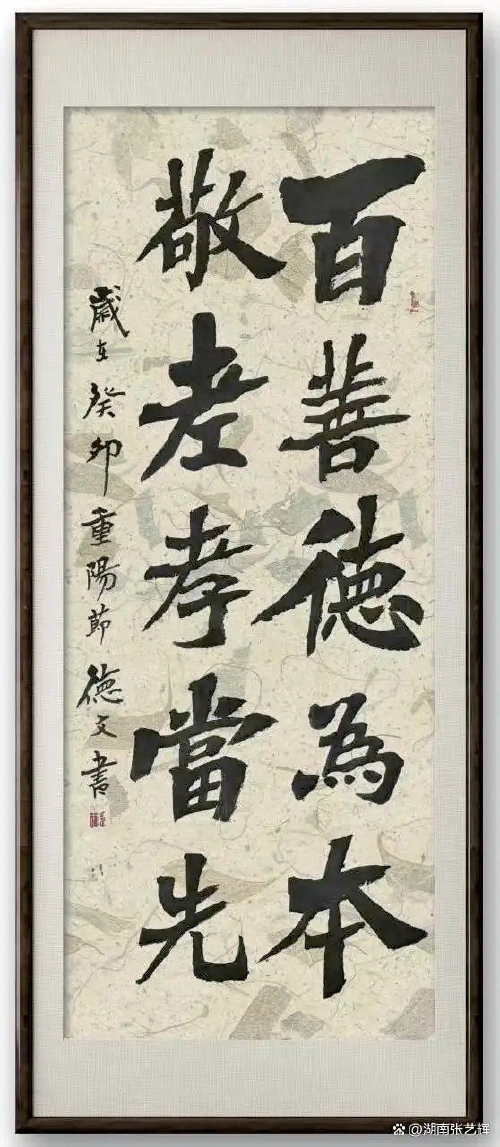 百善德為本
敬老孝當先
歲在癸卯重陽節德文書
@湖南张艺辉